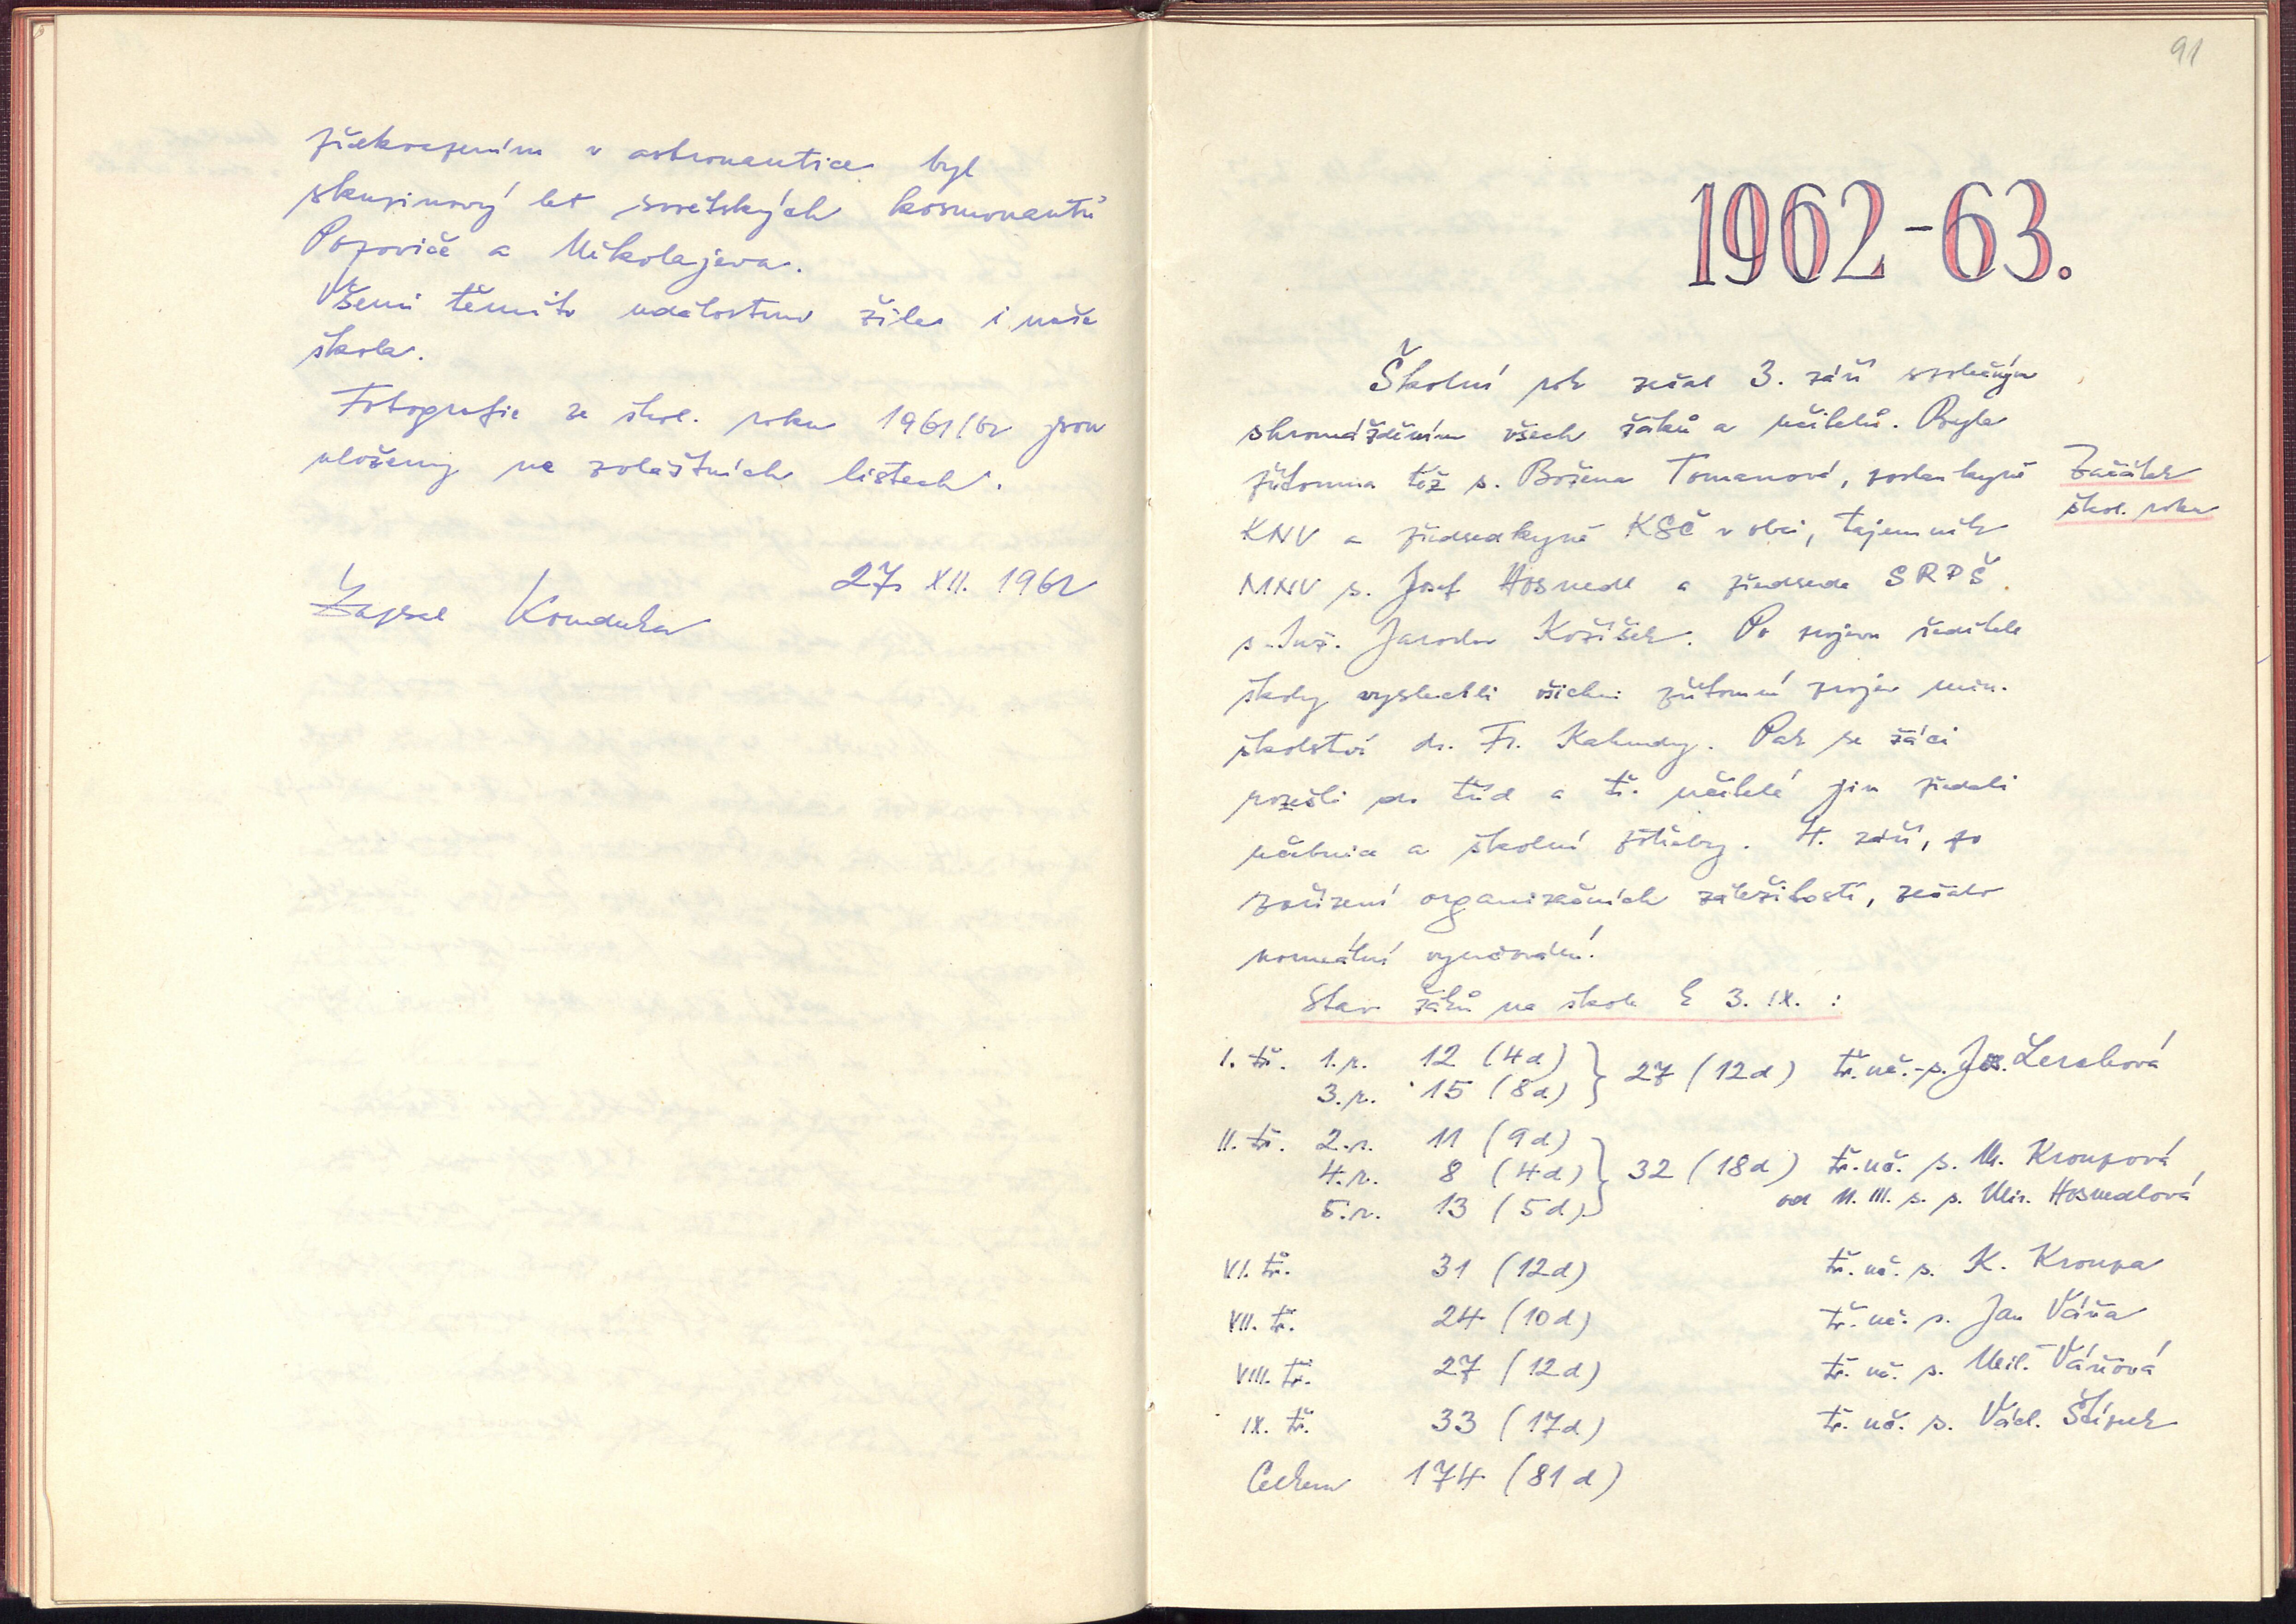 překvapením v astronautice byl
skupinový let sovětských kosmonautů
Popoviče a Nikolajeva.
Všemi těmito událostmi žila i naše
škola.
Fotografie ze škol. roku 1961/62 jsou
uloženy na zvláštních listech.
27. XII. 1962
Zapsal Komduka
91
1962-63.
Školní rok začal 3. září společným
shromážděním všech žáků a učitelů. Byla
přítomna též s. Božena Tomanová, poslankyně
Začátek
škol. roku
KNV a předsedkyně KSČ v obci, tajemník
MNV s. Josef Hosnedl a předseda SRPŠ
s. Inž. Jaroslav Kožíšek. Po projevu ředitele
školy vyslechli všichni přítomní projev min.
školství dr. Fr. Kahudy. Pak se žáci
rozešli do tříd a tř. učitelé jim předali
učebnice a školní potřeby. 4. září, po
zařízení organizačních záležitostí, začalo
normální vyučování.
Stav žáků na škole k 3. IX. :
I. tř. 1.r. 12 (4d) } 27 (12d) tř. uč. - s. Jos. Lerchová
3.r. 15 (8d)
II. tř. 2.r. 11 (9d)
4.r. 8 (4d) } 32 (18d) tř. uč. s. M. Kroupová,
5.r. 13 (5d) od 11. III. s. p. Mir. Hosnedlová
VI. tř. 31 (12d) tř. uč. s. K. Kroupa
VII. tř. 24 (10d) tř. uč. s. Jan Váňa
VIII. tř. 27 (12d) tř. uč. s. Mil. Váňová
IX. tř. 33 (17d) tř. uč. s. Václ. Štípek
Celkem 174 (81d)